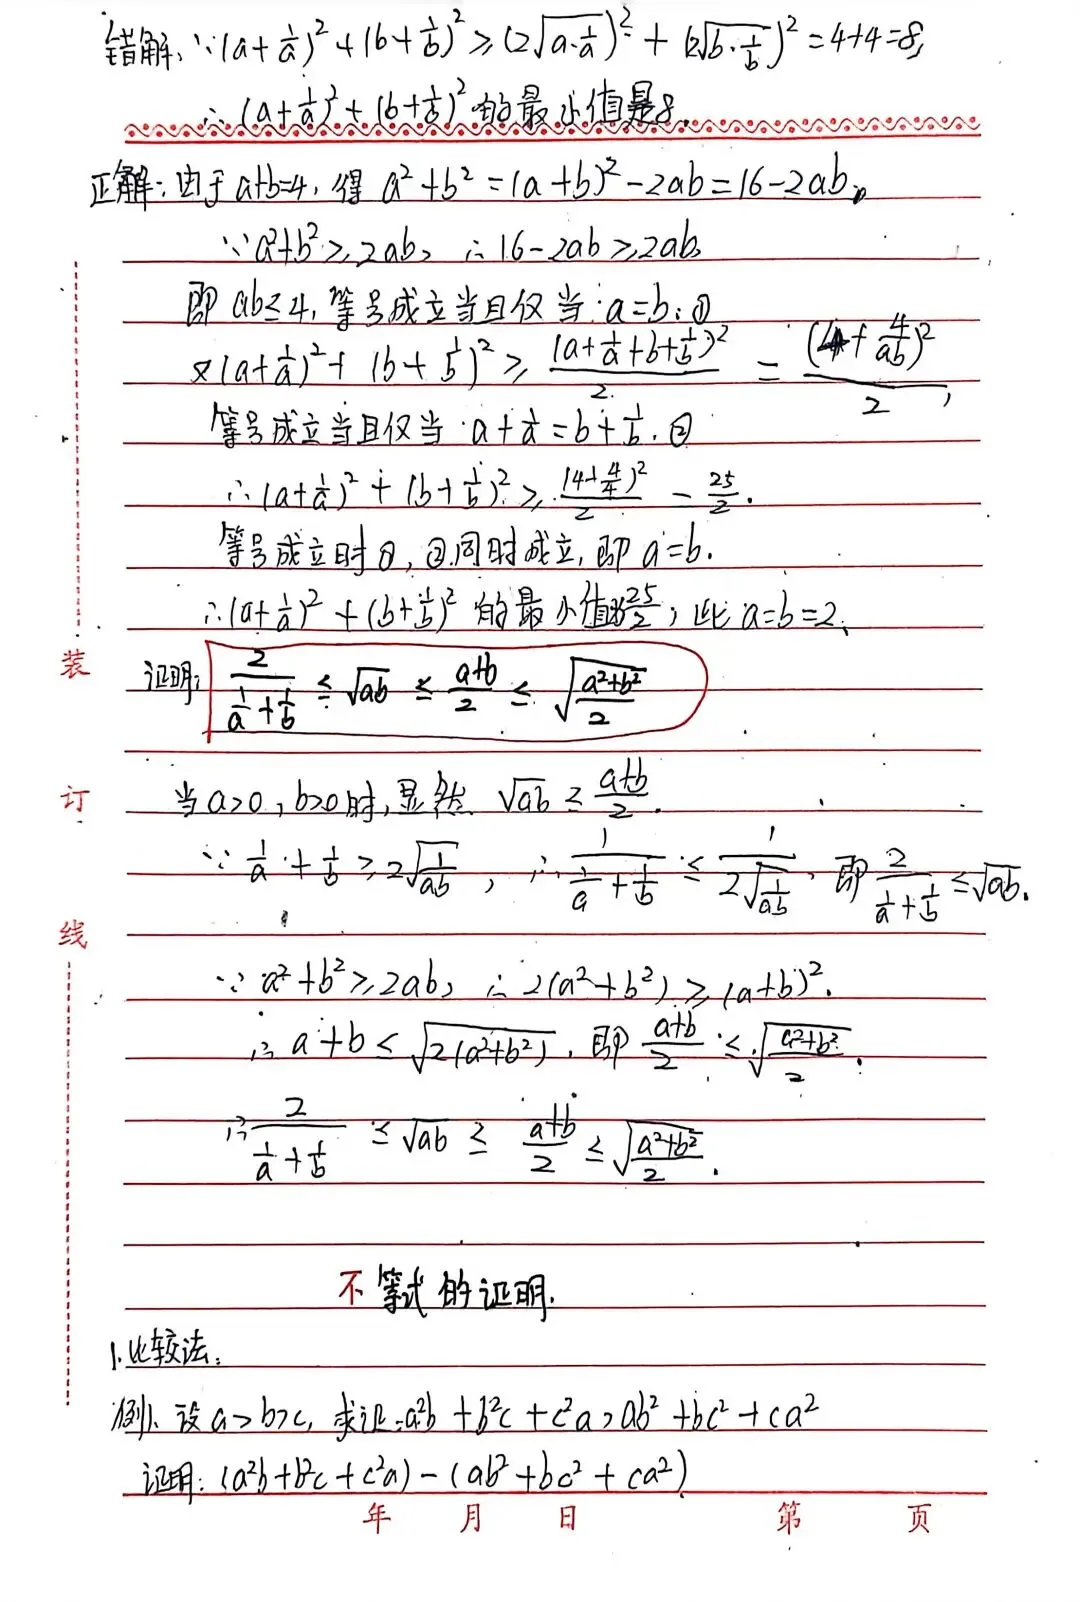 错解:∵(a+1/a)²+(b+1/b)²≥(2√(a·1/a))²+(2√(b·1/b))²=4+4=8,
∴(a+1/a)²+(b+1/b)²的最小值是8.
正解:由于a+b=4,得 a²+b²=(a+b)²-2ab=16-2ab,
∵a²+b²≥2ab,∴16-2ab≥2ab,
即 ab≤4,等号成立当且仅当:a=b;①
又(a+1/a)²+(b+1/b)²≥(a+1/a+b+1/b)²/2=(4+4/ab)²/2,
等号成立当且仅当:a+1/a=b+1/b.②
∴(a+1/a)²+(b+1/b)²≥(4+4/4)²/2=25/2.
等号成立时①,②同时成立,即 a=b.
∴(a+1/a)²+(b+1/b)²的最小值为25/2;此 a=b=2.
证明: 2/(1/a+1/b)≤√ab≤(a+b)/2≤√((a²+b²)/2)
装
订
当a>0,b>0时,显然 √ab≤(a+b)/2.
∵1/a+1/b≥2√(1/ab),∴1/(1/a+1/b)≤1/(2√(1/ab)),即2/(1/a+1/b)≤√ab.
线
∵a²+b²≥2ab,∴2(a²+b²)≥(a+b)².
∴a+b≤√(2(a²+b²)),即(a+b)/2≤√((a²+b²)/2).
∴2/(1/a+1/b)≤√ab≤(a+b)/2≤√((a²+b²)/2).
不等式的证明.
1.比较法:
例1.设a>b>c,求证:a²b+b²c+c²a>ab²+bc²+ca²
证明:(a²b+b²c+c²a)-(ab²+bc²+ca²)
年 月 日 第 页